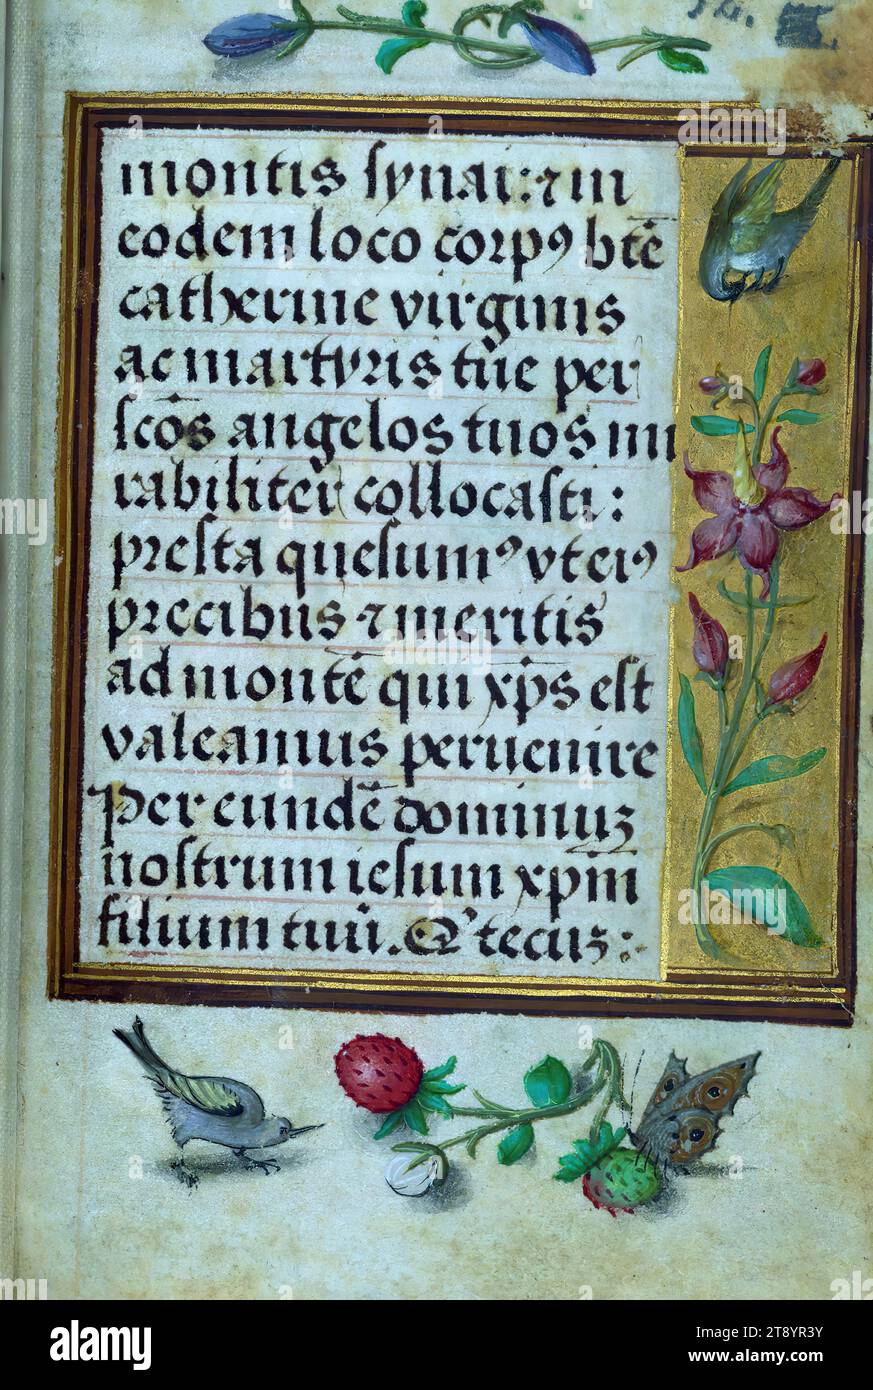 montis synai: ⁊ in
eodem loco corpꝯ btē
catherine virginis
ac martyris tue per
scōs angelos tuos mi
rabiliter collocasti:
presta quesumꝯ vt eiꝯ
precibus ⁊ meritis
ad montē qui xp̄s est
valeamus peruenire
Per eundē dominuꝫ
nostrum iesum xpm̄
filium tuū. Q' tecuꝫ:
alamy
Image ID: 2T8YR3Y
www.alamy.com